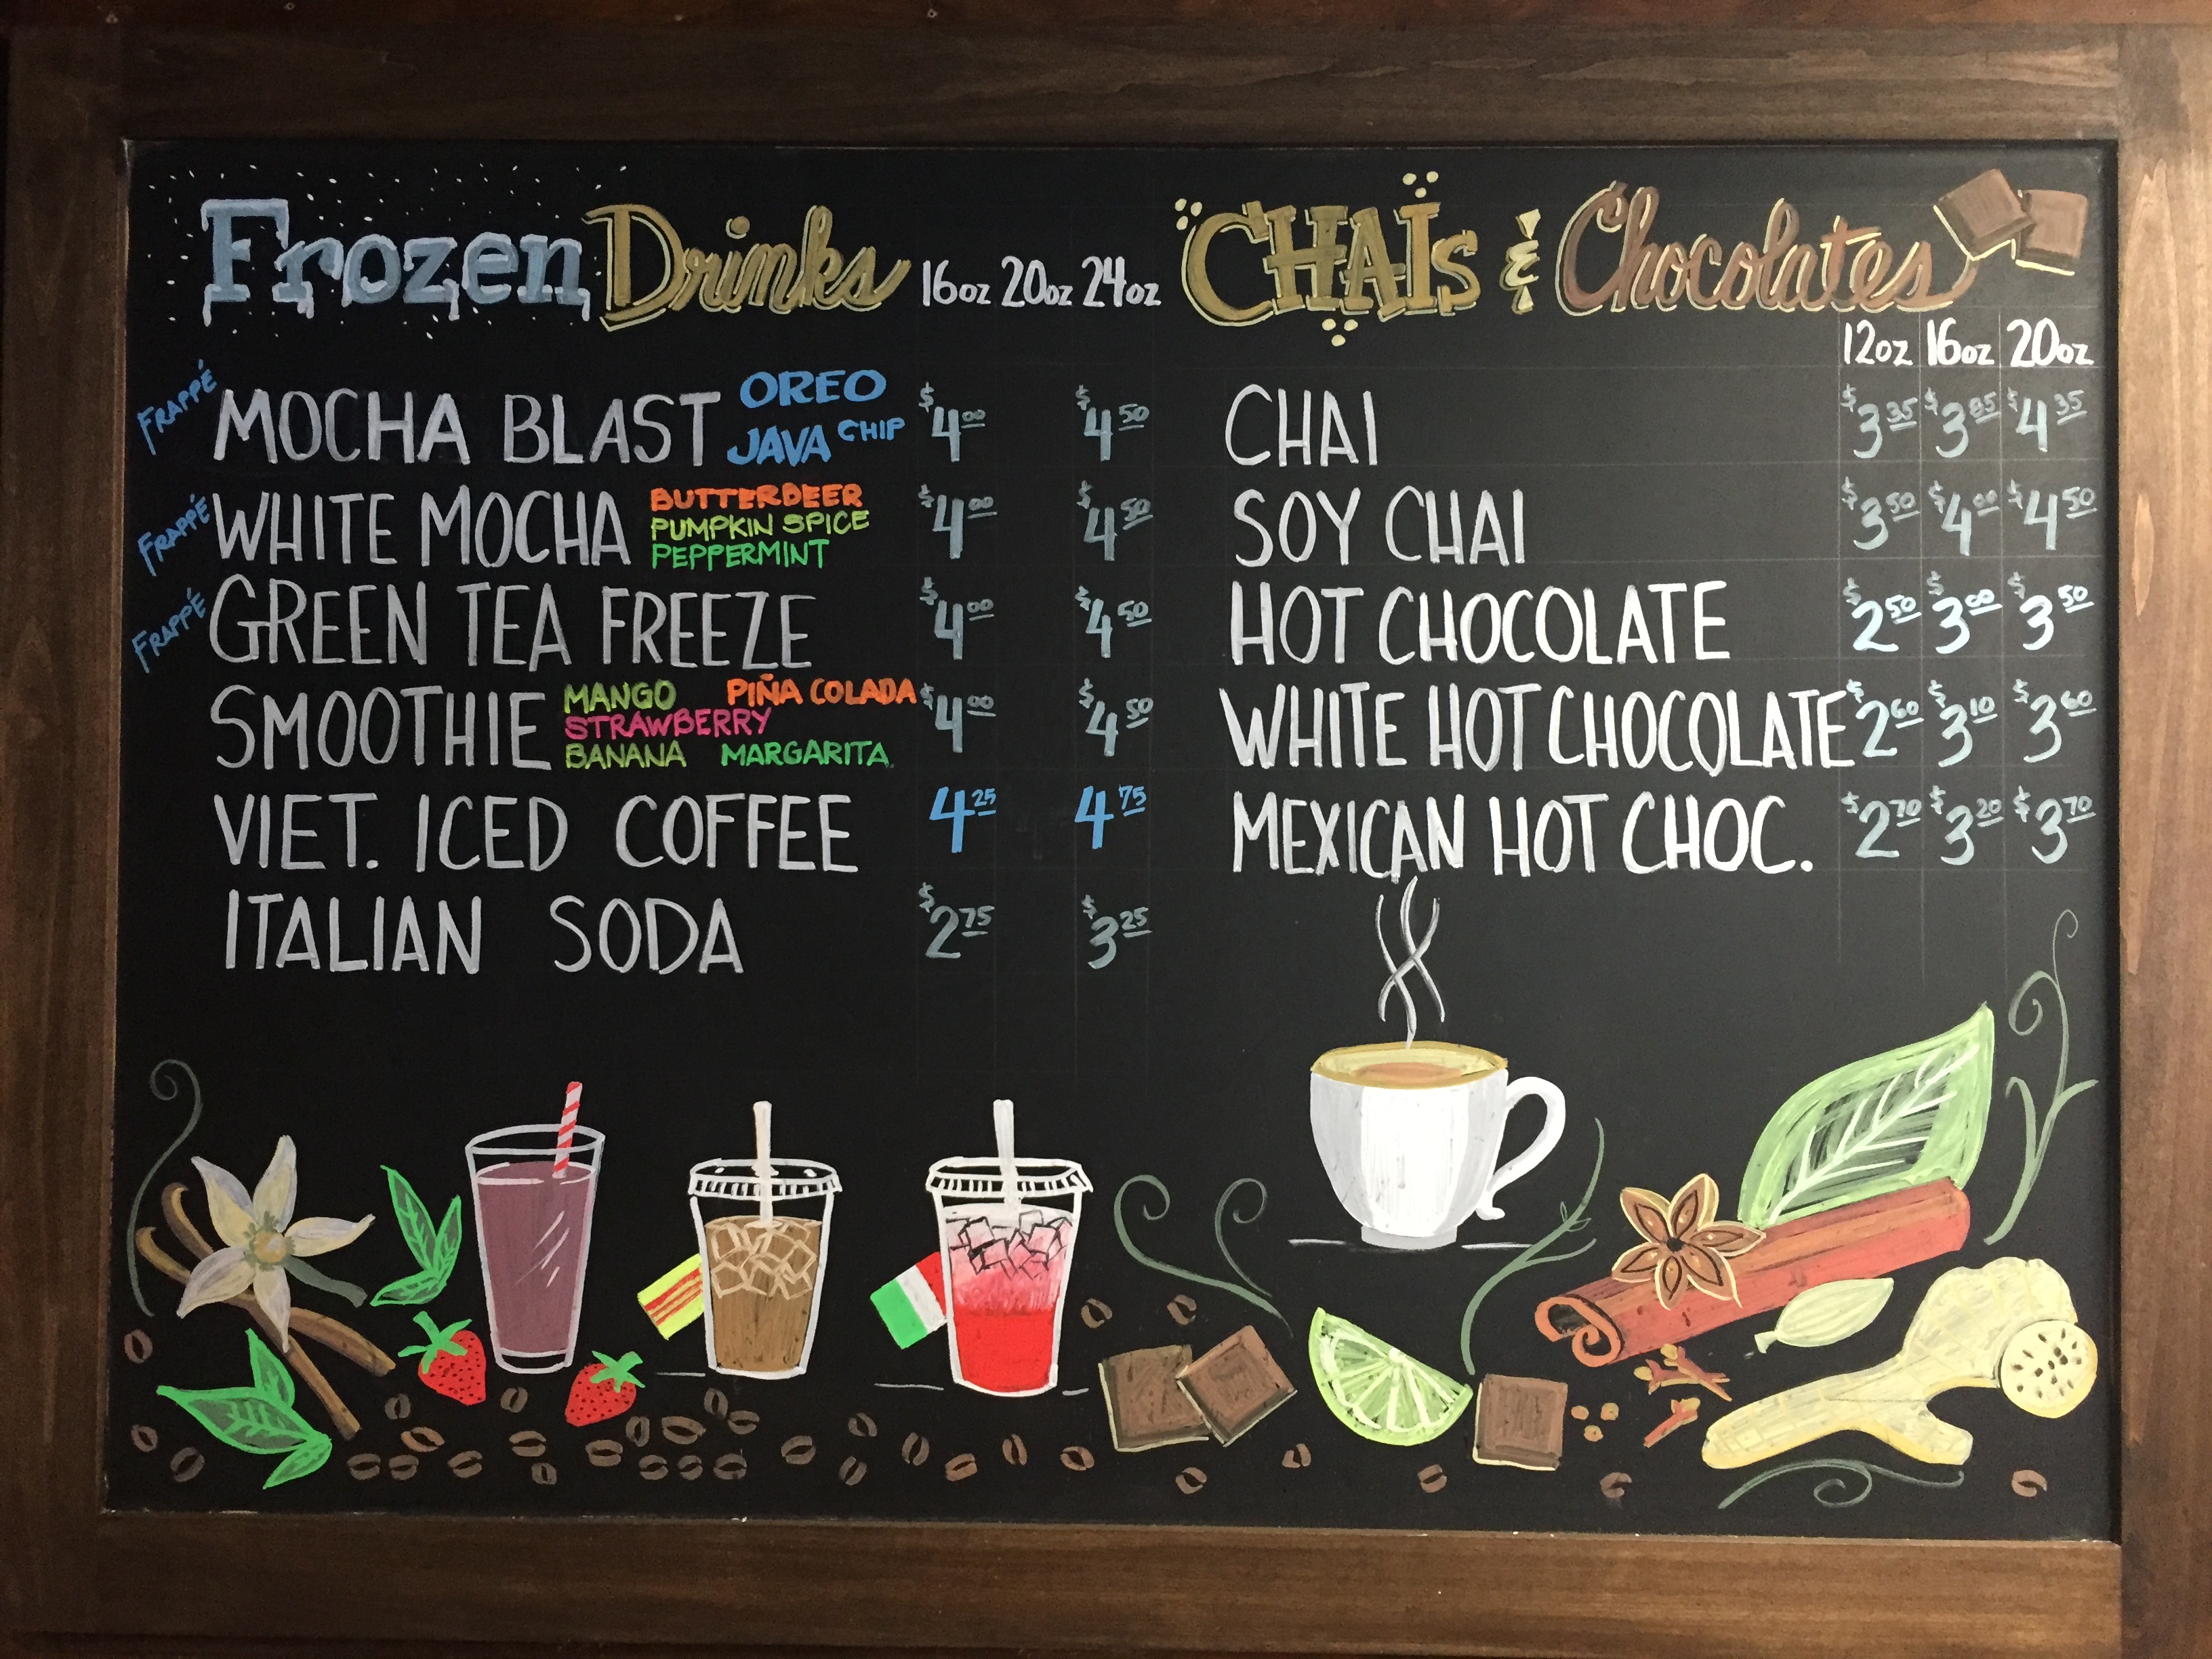 Frozen Drinks 16oz 20oz 24oz
FRAPPÉ MOCHA BLAST OREO JAVA CHIP $4.00 $4.50
FRAPPÉ WHITE MOCHA BUTTERBEER PUMPKIN SPICE PEPPERMINT $4.00 $4.50
FRAPPÉ GREEN TEA FREEZE $4.00 $4.50
SMOOTHIE MANGO PIÑA COLADA STRAWBERRY BANANA MARGARITA $4.00 $4.50
VIET. ICED COFFEE 4.25 4.75
ITALIAN SODA $2.75 $3.25
CHAIs & Chocolates
12oz 16oz 20oz
CHAI $3.35 $3.85 $4.35
SOY CHAI $3.50 $4.00 $4.50
HOT CHOCOLATE $2.50 $3.00 $3.50
WHITE HOT CHOCOLATE $2.60 $3.10 $3.60
MEXICAN HOT CHOC. $2.70 $3.20 $3.70